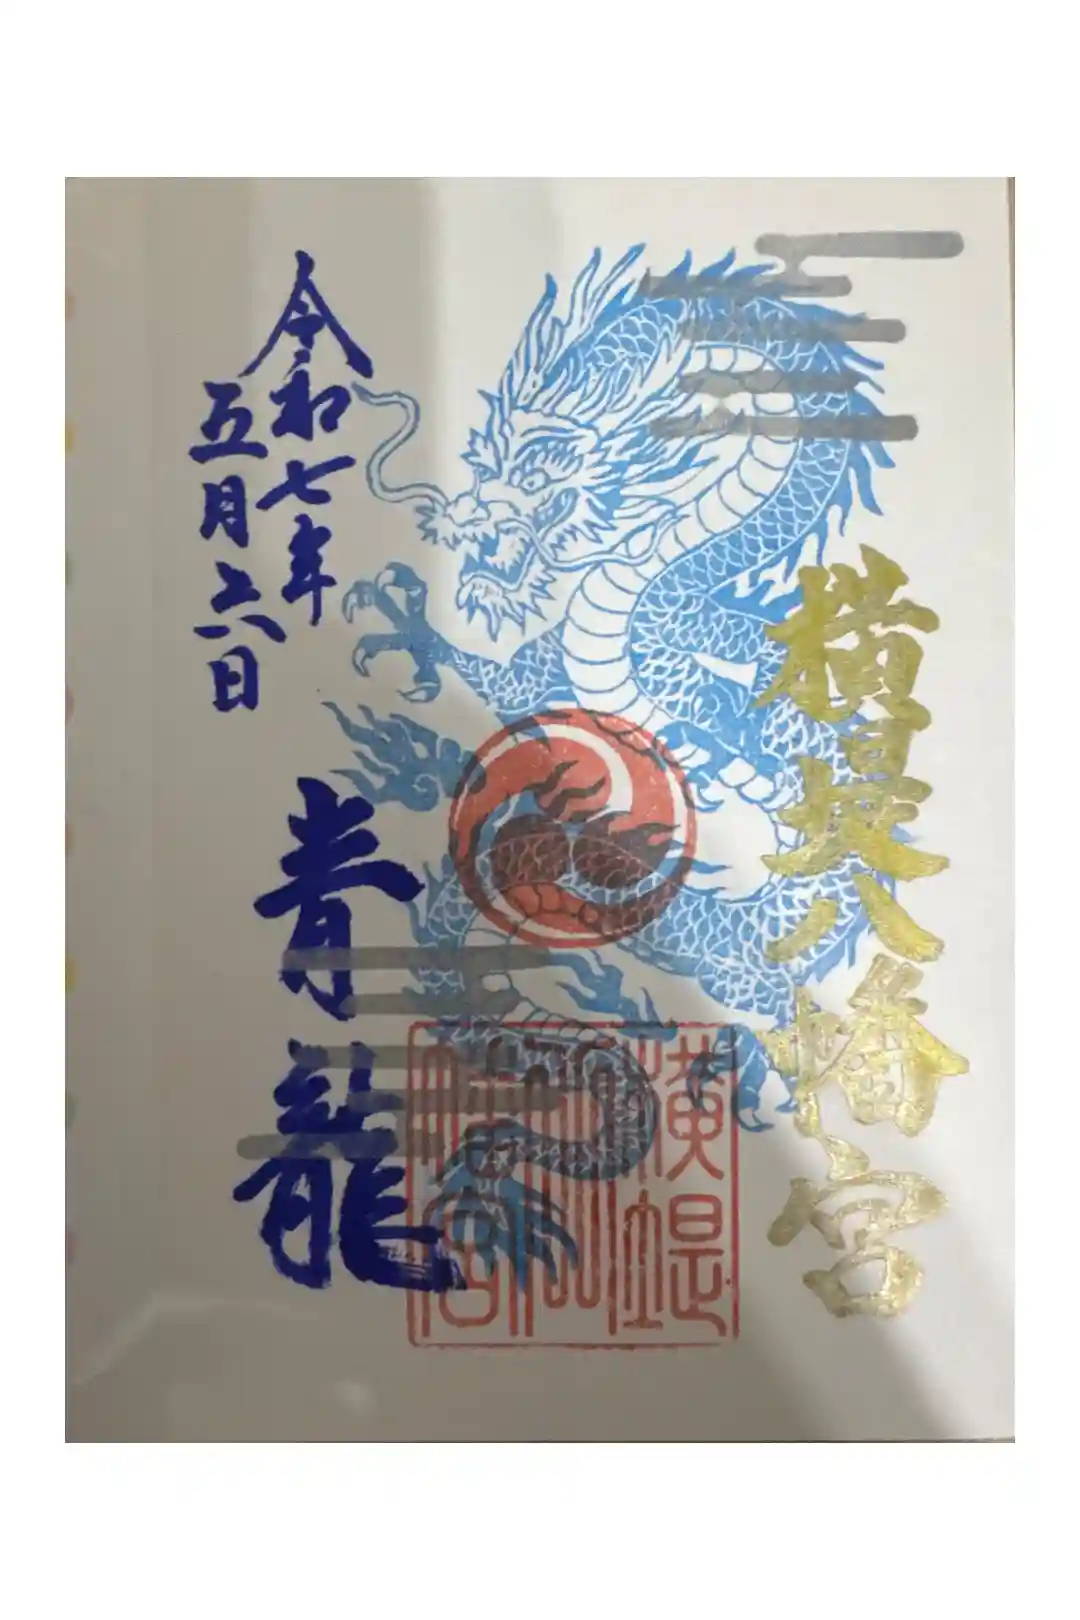 横堤八幡宮
横堤
八
幡宮
青龍
令和七年
五月六日